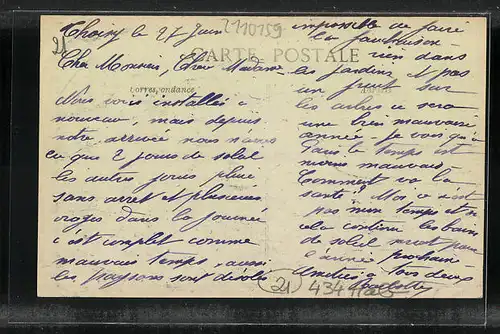 Choisy le 27 Juin
2110159
21
CARTE POSTALE
Correspondance
Cher Monsieur, Chère Madame
Nous voici installés à
nouveau, mais depuis
notre arrivée nous n'avons
eu que 2 jours de soleil
les autres jours pluie
sans arret et plusieurs
orages dans la journée
c'est complet comme
mauvais temps, aussi
les paysans sont désolés
impossible de faire
la
rien dans
les jardins et pas
un fruit sur
les arbres ce sera
une bien mauvaise
année je vois qu'à
Paris le temps est
moins mauvais
Comment va la
santé? Moi c'est
pas mon temps et si
cela continu les bains
de soleil seront pour
l'année prochaine
Amitiés à tous deux
21
434